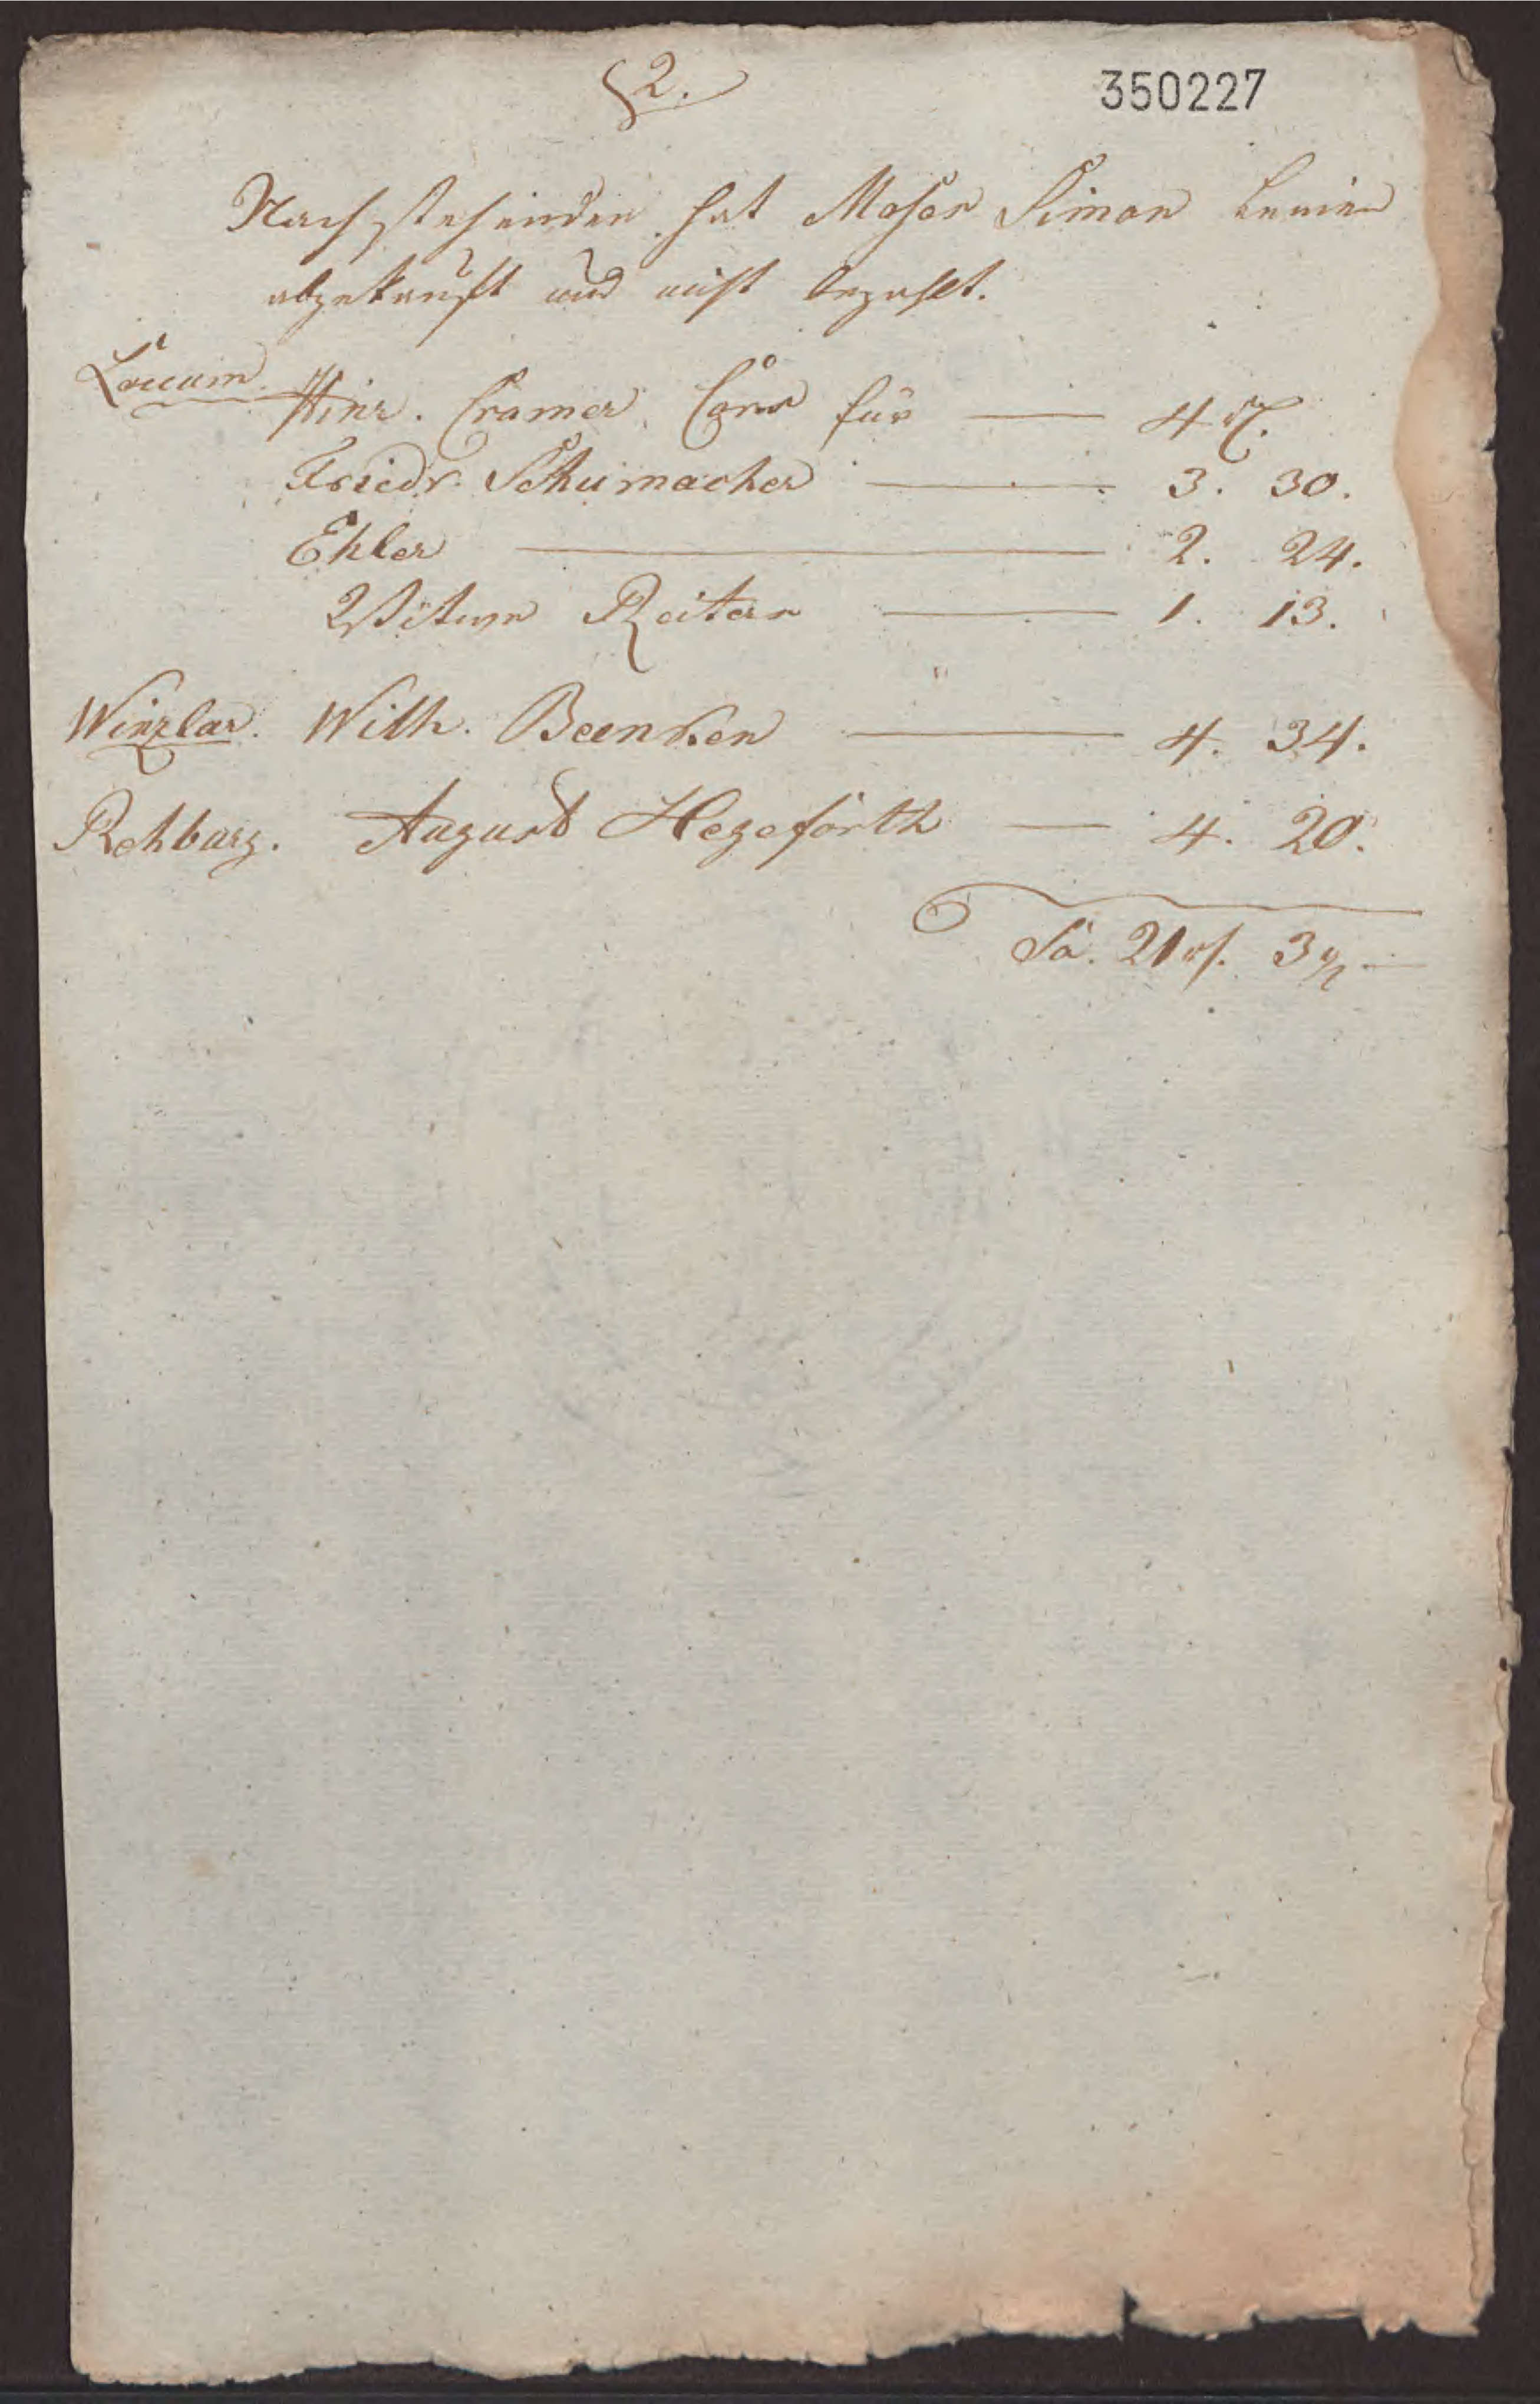 § 2.
350227
Nachstehenden hat Moses Simon Leinen
abgekauft und nicht bezahlt.
Loccum. Hinr. Cramer, für — 4 rt.
Friedr. Schumacher — 3. 30.
Ehler — 2. 24.
Witwe Reiter — 1. 13.
Winzlar. Wilh. Beenken — 4. 34.
Rehburg. August Hegeförth — 4. 20.
Sa. 21 rt. 3